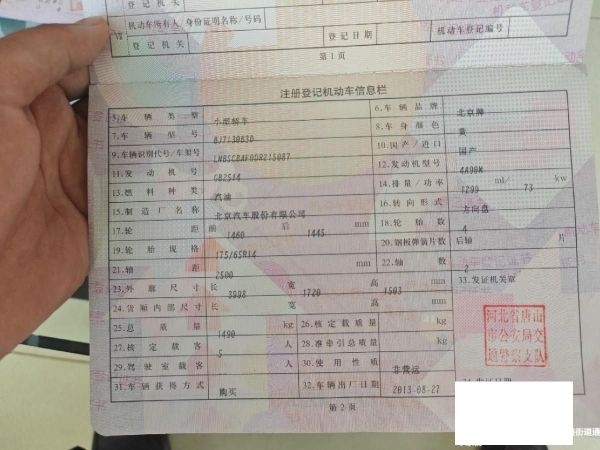 机动车所有人/身份证明名称/号码
Ⅶ 登记机关 登记日期 机动车登记编号
第1页
注册登记机动车信息栏
5.车辆类型 小型轿车 6.车辆品牌 北京牌
7.车辆型号 BJ7130B3D 8.车身颜色 黄
9.车辆识别代号/车架号 LNBSCBAF0DR215087 10.国产/进口 国产
11.发动机号 GB2514 12.发动机型号 4A90M
13.燃料种类 汽油 14.排量/功率 1299 ml/ 73 kw
15.制造厂名称 北京汽车股份有限公司 16.转向形式 方向盘
17.轮距 前 1460 后 1445 mm 18.轮胎数 4
19.轮胎规格 175/65R14 20.钢板弹簧片数 后轴 片
21.轴距 2500 mm 22.轴数 2
23.外廓尺寸 长 3998 宽 1720 高 1503 mm 33.发证机关章
24.货厢内部尺寸 长 宽 高 mm
25.总质量 1490 kg 26.核定载质量 kg
27.核定载客 5 人 28.准牵引总质量 kg
29.驾驶室载客 人 30.使用性质 非营运
31.车辆获得方式 购买 32.车辆出厂日期 2013-08-27
河北省唐山
市公安局交
通警察支队
第2页
街道通